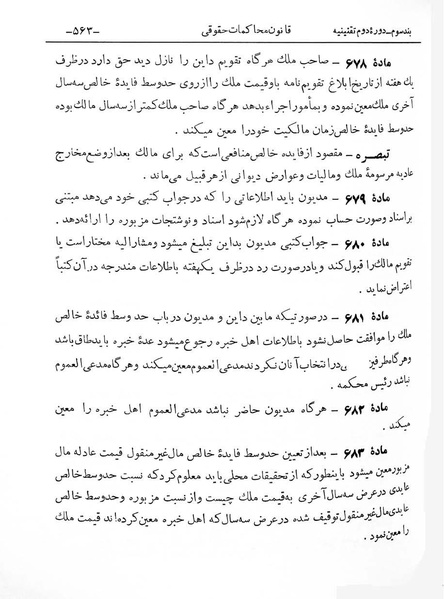 بند سوم ـ دورۀ دوم تقنینیه قانون محاکمات حقوقی ـ۵۶۳ـ
مادۀ ۶۷۸ ـ صاحب ملك هرگاه تقویم داین را نازل دید حق دارد در ظرف
یك هفته از تاریخ ابلاغ تقویم نامه باو قیمت ملك را از روی حد وسط فایدۀ خالص سه سال
آخری ملك معین نموده و بمأمور اجراء بدهد هرگاه ملك کمتر از سه سال مالك بوده
حد وسط فایدۀ خالص زمان مالکیت خود را معین میکند .
تبصره ـ مقصود از فایده خالص منافعی است که برای مالك بعد از وضع مخارج
عادیه مرسومۀ ملك و مالیات و عوارض دیوانی از هر قبیل می‌ماند .
مادۀ ۶۷۹ ـ مدیون باید اطلاعاتی را که در جواب کتبی خود می‌دهد مبتنی
بر اسناد وصورت حساب نموده هرگاه لازم شود اسناد و نوشتجات مزبوره را ارائه دهد .
مادۀ ۶۸۰ ـ جواب کتبی مدیون بداین تبلیغ میشود و مشارالیه مختار است یا
تقویم مالك را قبول کند و یا در صورت رد در ظرف یکهفته باطلاعات مندرجه در آن کتباً
اعتراض نماید .
مادۀ ۶۸۱ ـ در صورتیکه مابین داین و مدیون در باب حد وسط فائدۀ خالص
ملك را موافقت حاصل نشود باطلاعات اهل خبره رجوع میشود عدۀ خبره باید طاق باشد
و هرگاه طرفین در انتخاب آنان نکردند مدعی العموم معین میکند و هرگاه مدعی العموم
نباشد رئیس محکمه .
مادۀ ۶۸۲ ـ هرگاه مدیون حاضر نباشد مدعی العموم اهل خبره را معین
میکند .
مادۀ ۶۸۳ ـ بعد از تعیین حد وسط فایدۀ خالص مال غیر منقول قیمت عادله مال
مزبور معین میشود باینطور که از تحقیقات محلی باید معلوم کرد که نسبت حد وسط خالص
عایدی در عرض سه سال آخری به قیمت ملك چیست و از نسبت مزبوره و حد وسط خالص
عایدی مال غیر منقول توقیف شده در عرض سه سال که اهل خبره معین کرده‌اند قیمت ملك
را معین نمود .